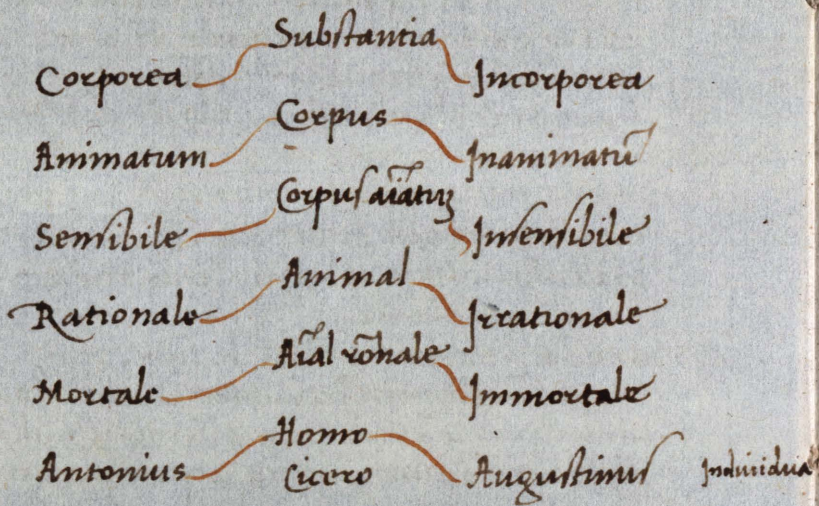 Substantia
Corporea Incorporea
Corpus
Animatum Inanimatũ
Corpus aiãtuʒ
Sensibile Insensibile
Animal
Rationale Irrationale
Aĩal rõnale
Mortale Immortale
Homo
Antonius Cicero Augustinus Indiuidua